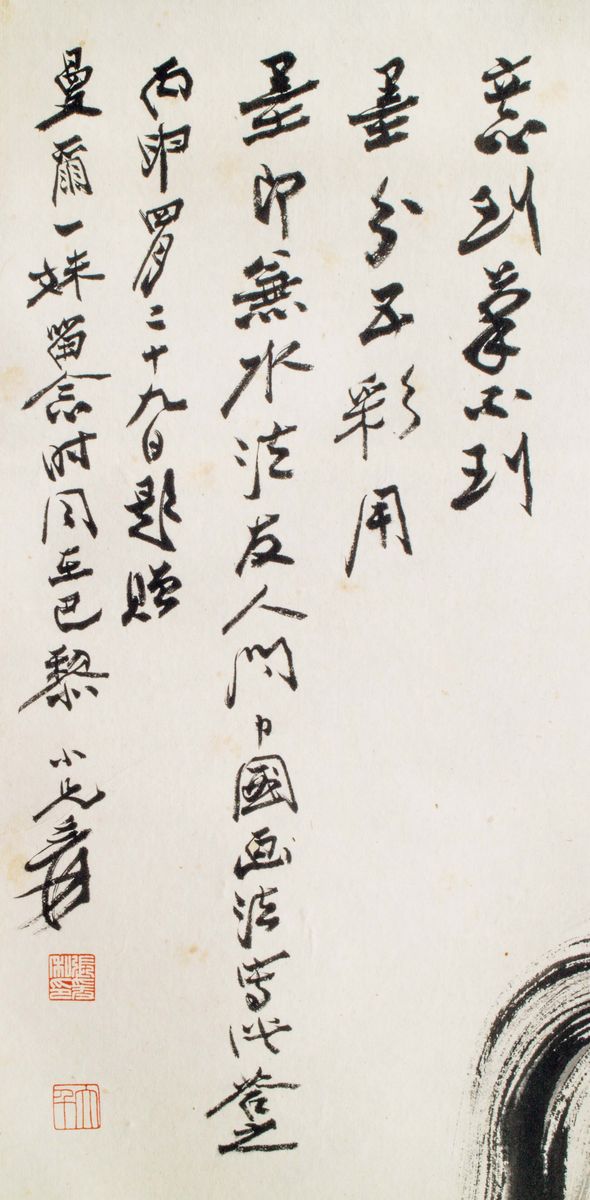 意到筆不到
墨分五彩用
墨即無水法友人問中國画法寫此答之
丙申四月二十九日題贈
曼爾一妹留念时同在巴黎 小兄爰
張爰私印
大千